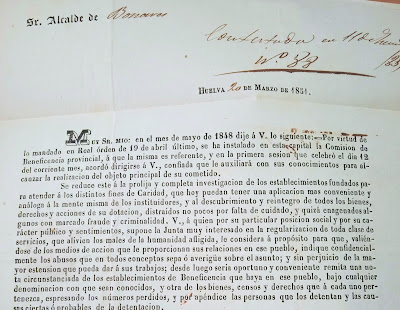 Sr. Alcalde de Bonares
Contestada en 11 de Junio
Nº 83
Huelva 20 de Marzo de 1851.
Muy Sr. mio: en el mes de mayo de 1848 dije á V. lo siguiente=Por virtud de
lo mandado en Real órden de 19 de abril último, se ha instalado en esta capital la Comision de
Beneficencia provincial, á que la misma es referente, y en la primera sesion que celebró el dia 12
del corriente mes, acordó dirigirse á V., confiada que le auxiliará con sus conocimientos para al-
canzar la realizacion del objeto principal de su cometido.
Se reduce este á la prolija y completa investigacion de los establecimientos fundados pa-
ra atender á los distintos fines de Caridad, que hoy puedan tener una aplicacion mas conveniente y
análoga á la mente misma de los instituidores, y al descubrimiento y reintegro de todos los bienes,
derechos y acciones de su dotacion, distraidos no pocos por falta de cuidado, y quizá enagenados al-
gunos con marcado fraude y criminalidad. V., á quien por su particular posicion social y por su ca-
rácter público y sentimientos, supone la Junta muy interesado en la regularizacion de toda clase de
servicios, que alivien los males de la humanidad afligida, le considera á propósito para que, valién-
dose de los medios de accion que le proporcionan sus relaciones en ese pueblo, indique confidencial-
mente los abusos que en todos conceptos sepa ó averigüe sobre el asunto; y sin perjuicio de la ma-
yor estension que puede dar á sus trabajos; desde luego seria oportuno y conveniente remita una no-
ta circunstanciada de los establecimientos de Beneficencia que haya en ese pueblo, bajo cualquier
denominacion con que sean conocidos, y otra de los bienes, censos y derechos que á cada uno per-
tenezca, espresando los números perdidos, y por apéndice las personas que los detentan y las cau-
sas ciertas ó probables de la detentacion.